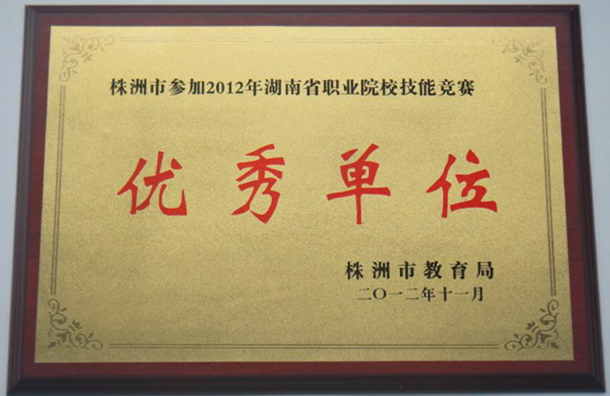 株洲市参加2012年湖南省职业院校技能竞赛
优秀单位
株洲市教育局
二〇一二年十一月